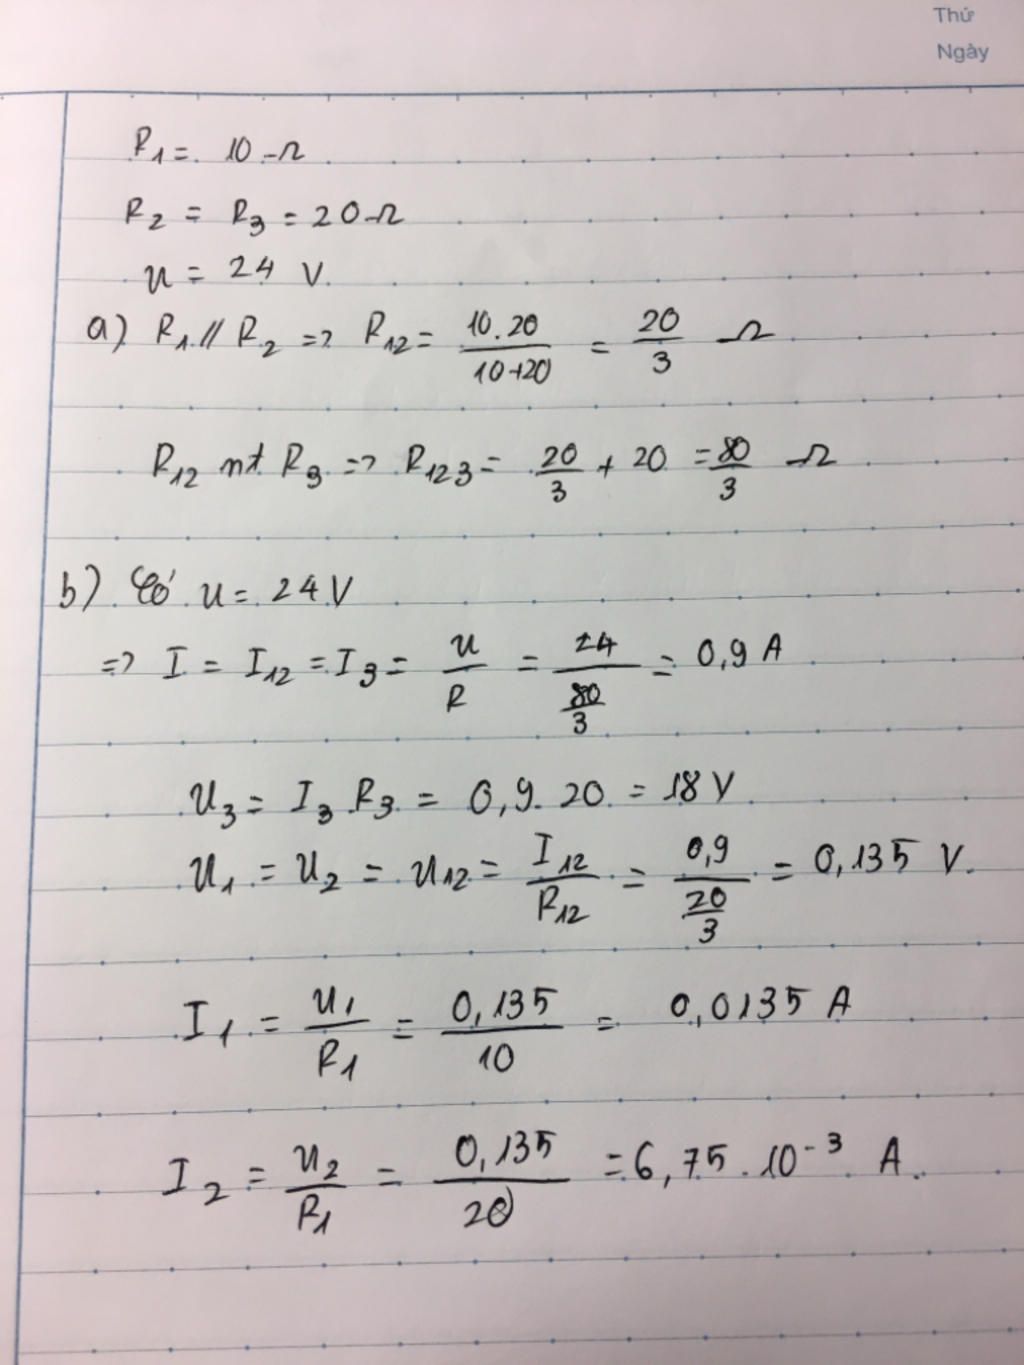 Thứ
Ngày
R₁ = 10 Ω
R₂ = R₃ = 20 Ω
u = 24 V
a) R₁ // R₂ => R₁₂ = 10.20/10+20 = 20/3 Ω
R₁₂ nt R₃ => R₁₂₃ = 20/3 + 20 = 80/3 Ω
b) Có u = 24 V
=> I = I₁₂ = I₃ = u/R = 24/(80/3) = 0,9 A
u₃ = I₃ . R₃ = 0,9 . 20 = 18 V
u₁ = u₂ = u₁₂ = I₁₂/R₁₂ = 0,9/(20/3) = 0,135 V.
I₁ = u₁/R₁ = 0,135/10 = 0,0135 A
I₂ = u₂/R₁ = 0,135/20 = 6,75 . 10⁻³ A.